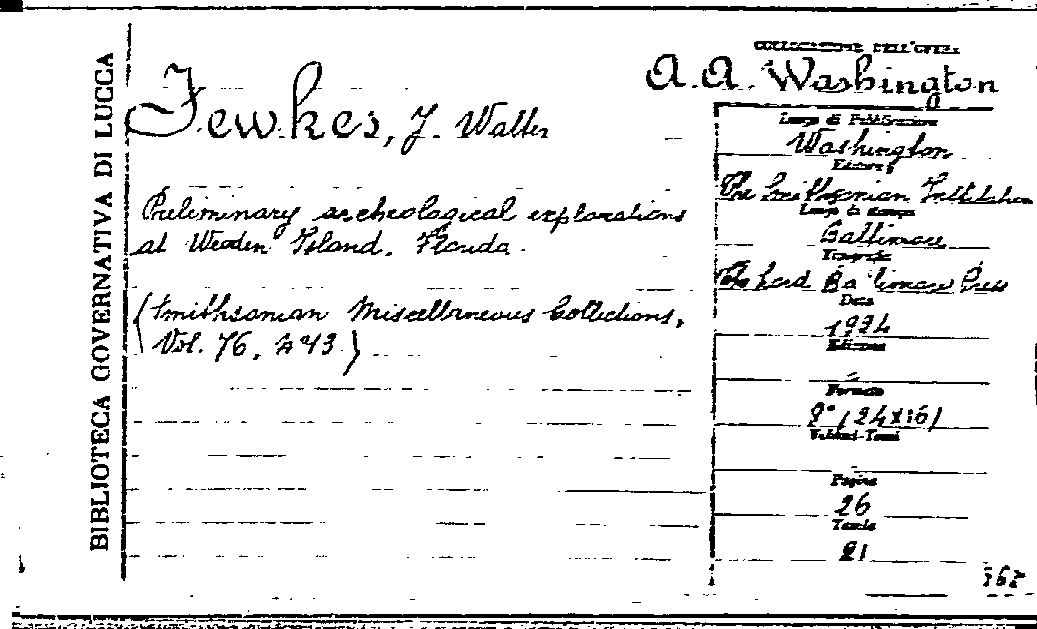 BIBLIOTECA GOVERNATIVA DI LUCCA
COLLOCAZIONE DELL'OPERA
A. A. Washington
Fewkes, J. Walter
Preliminary archeological explorations
at Weeden Island. Florida.
(Smithsonian Miscellaneous Collections,
Vol. 76, n° 13)
Luogo di Pubblicazione
Washington
Editore
The Smithsonian Institution
Luogo di stampa
Baltimore
Tipografia
The Lord Baltimore Press
Data
1924
Edizione
Formato
8° (24x16)
Volumi-Tomi
Pagine
26
Tavole
21